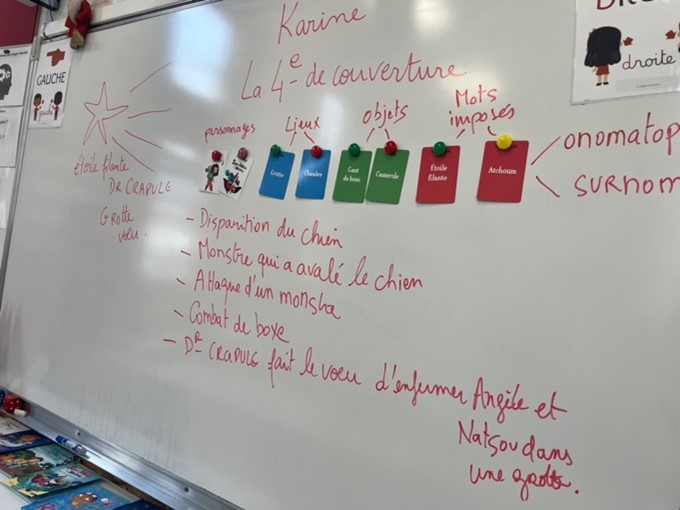 Karine
La 4e de couverture
GAUCHE
droite
étoile filante
DR CRAPULE
Grotte
voeu.
personnages
Lieux
objets
Mots
imposés
Grotte
Chambre
Gant
de boxe
Casserole
Étoile
filante
Atchoum
onomatop
SURNOM
- Disparition du chien
- Monstre qui a avalé le chien
- Attaque d'un
- Combat de boxe
- DR CRAPULE fait le voeu d'enfermer Angile et
Natsou dans
une grotte.